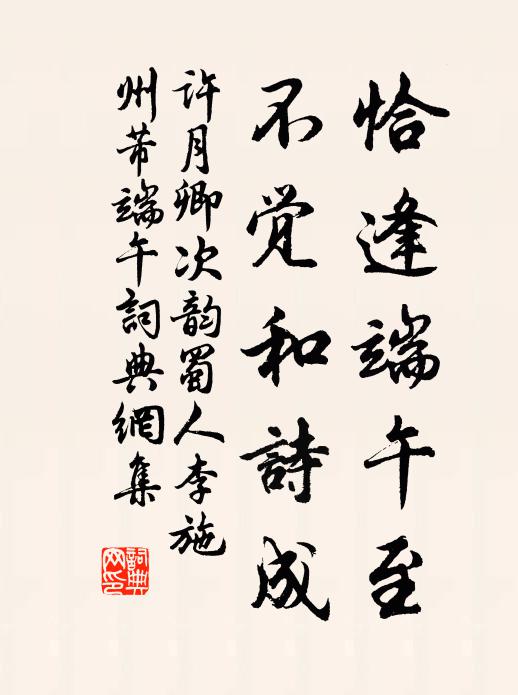 恰逢端午至
不觉和詩成
许月卿次韵蜀人李施
州芾端午詞典網集
詞典
网印